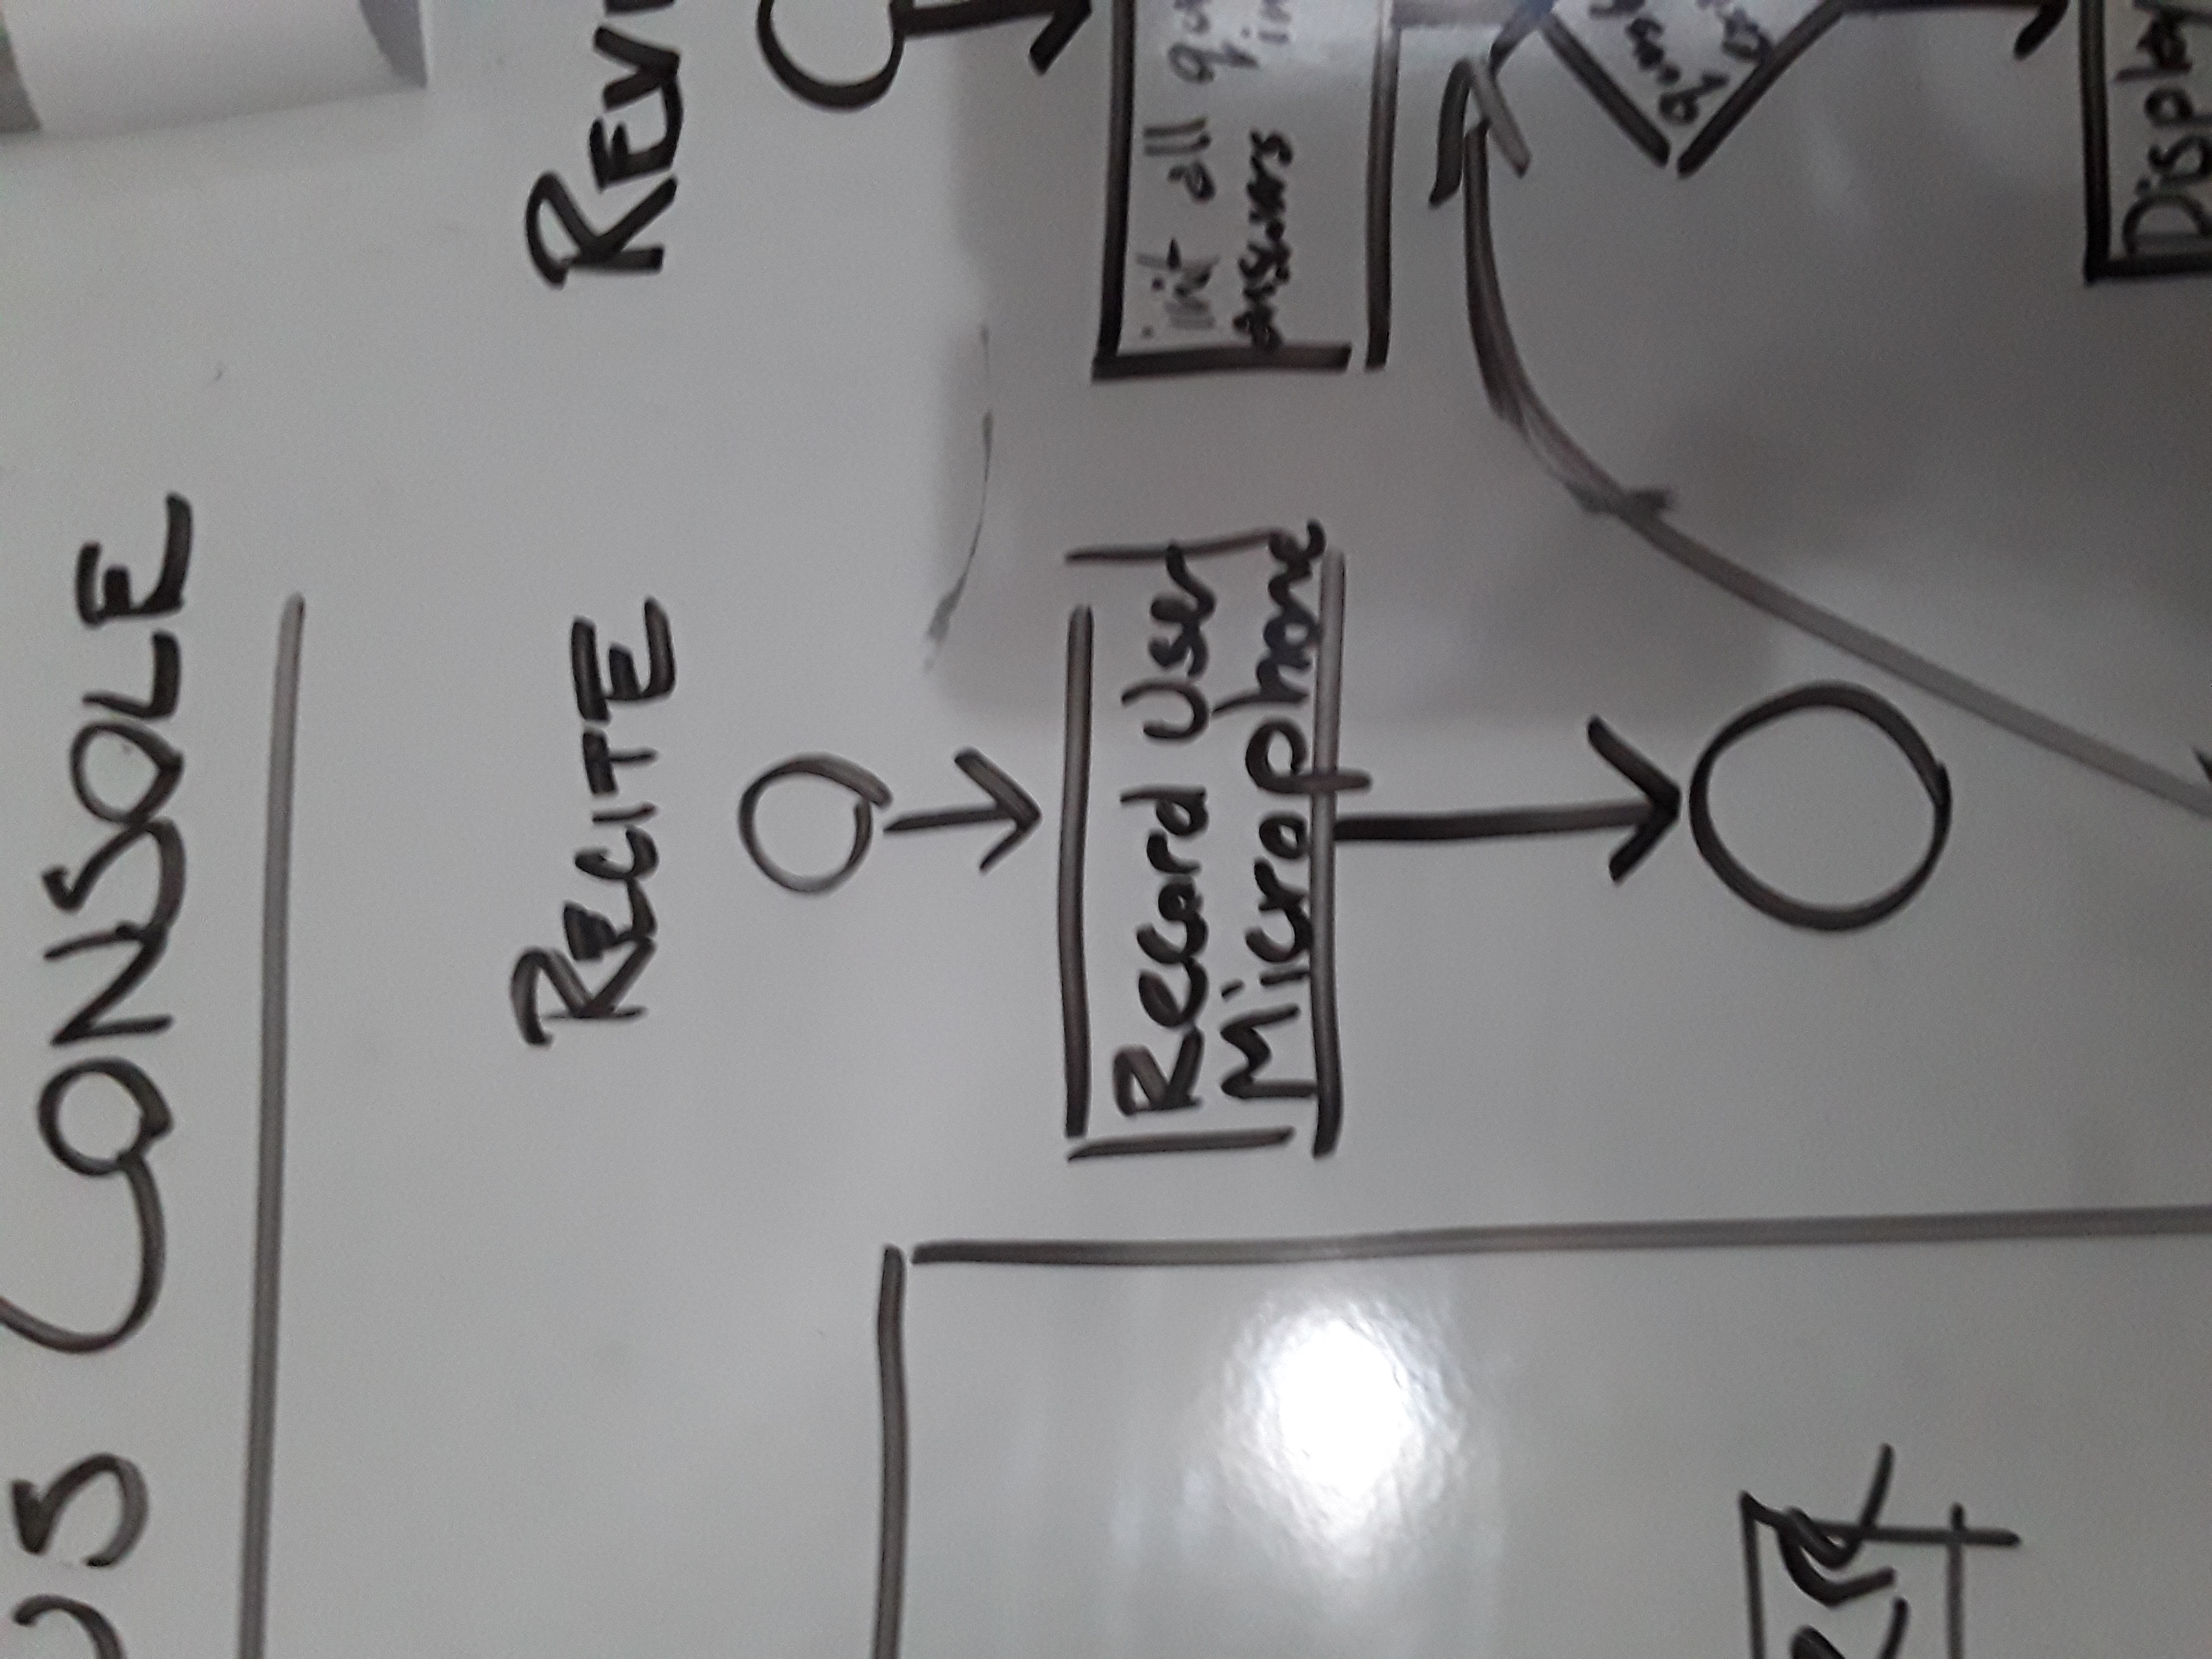 US CONSOLE
RECITE
REVI
Record User
Microphone
init all
answers in
Display